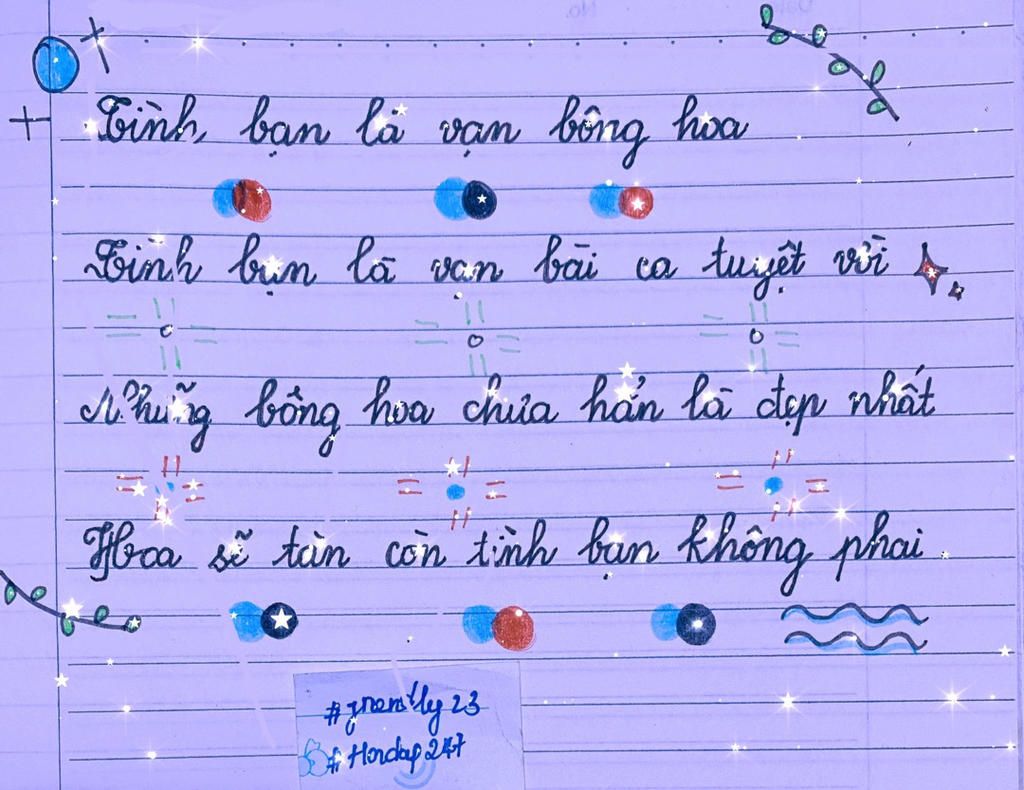 Tình bạn là vạn bông hoa
Tình bạn là vạn bài ca tuyệt vời
Những bông hoa chưa hẳn là đẹp nhất
Hoa sẽ tàn còn tình bạn không phai